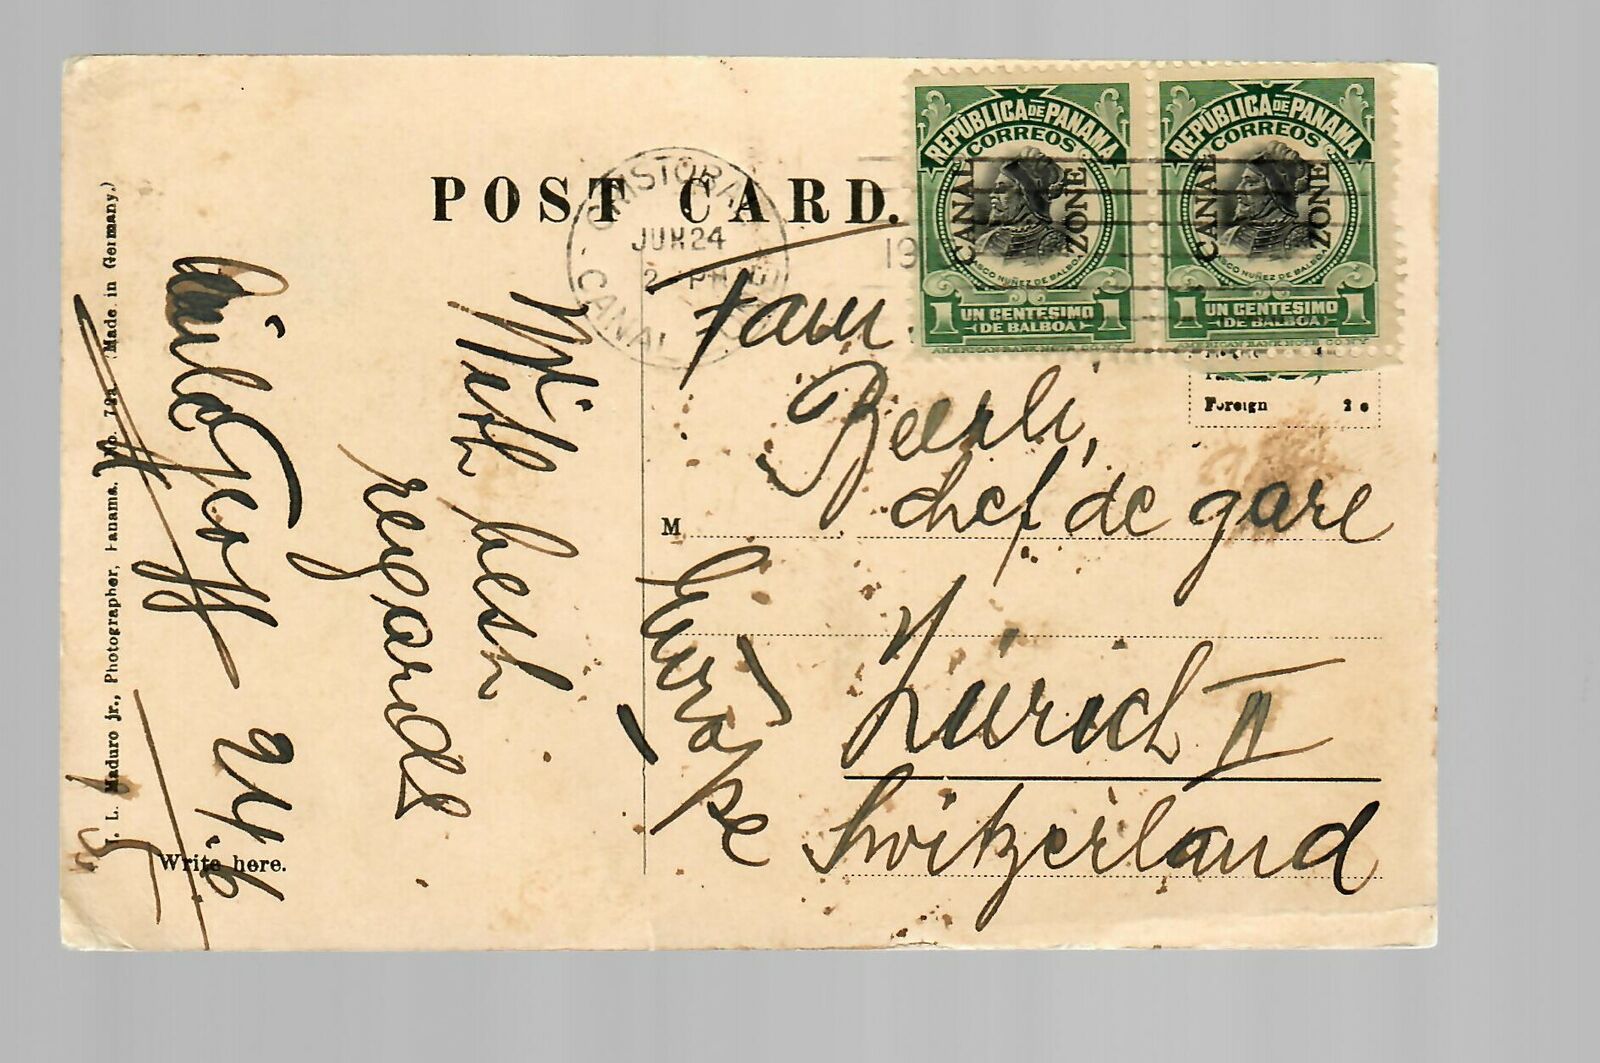 POST CARD.
CRISTOBAL
JUN 24
2 PM
CANAL
19
REPÚBLICA DE PANAMA
CORREOS
CANAL ZONE
VASCO NUÑEZ DE BALBOA
1 UN CENTESIMO 1
DE BALBOA
AMERICAN BANK NOTE CO. N.Y.
REPÚBLICA DE PANAMA
CORREOS
CANAL ZONE
VASCO NUÑEZ DE BALBOA
1 UN CENTESIMO 1
DE BALBOA
AMERICAN BANK NOTE CO. N.Y.
Foreign 2 c
Fam.
Beerli,
chef de gare
M
Zürich II
Switzerland
Europe
With best
regards
24.6.
Write here.
I. L. Maduro jr., Photographer, Panama. No. (Made in Germany.)